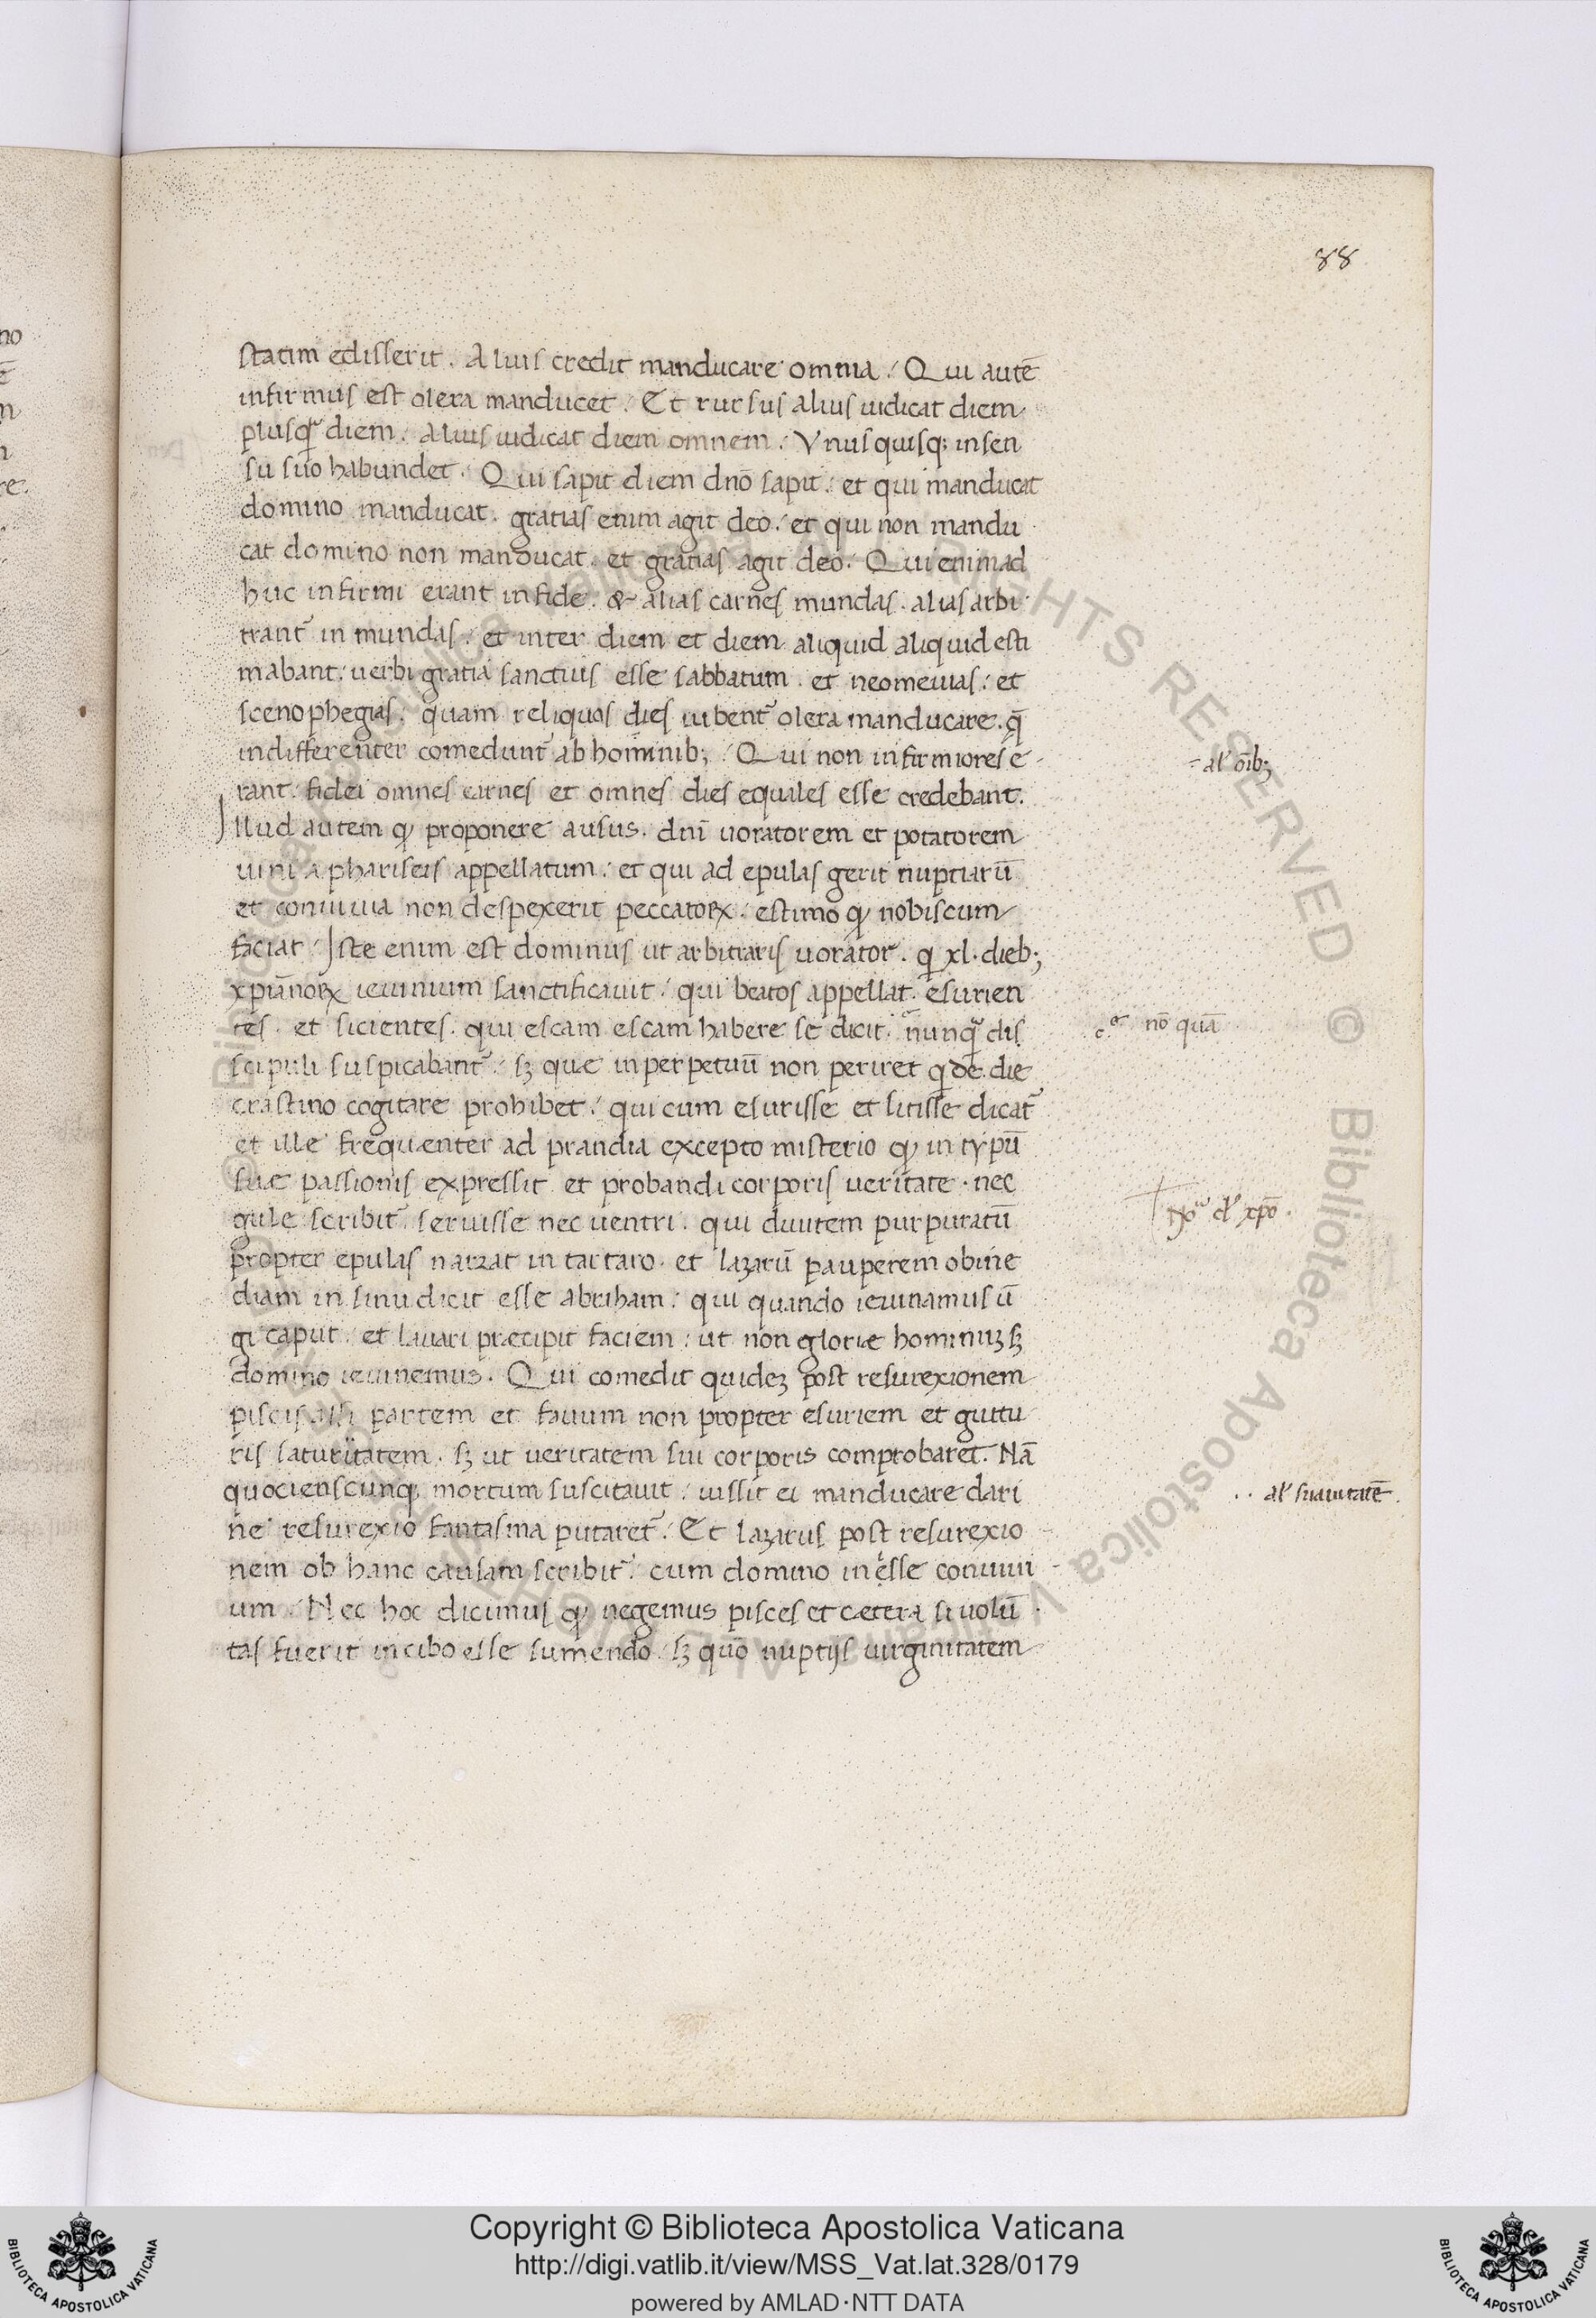 88
statim edisserit. Alius credit manducare omnia. Qui autē
infirmus est olera manducet. Et rursus alius iudicat diem
plusq̃ diem. Alius iudicat diem omnem. Vnusquisq; in sen
su suo habundet. Qui sapit diem dnō sapit. et qui manducat
domino manducat. gratias enim agit deo. et qui non mandu
cat domino non manducat. et gratias agit deo. Qui enim ad
huc infirmi erant in fide. & alias carnes mundas. alias arbi
trant᷑ in mundas. et inter diem et diem aliquid aliquid esti
mabant. uerbi gratia sanctius esse sabbatum. et neomenias. et
scenophegias. quam reliquos dies iubent᷑ olera manducare. q̄
indifferenter comedunt᷑ ab hominib;. Qui non infirmiores e
rant. fidei omnes carnes et omnes dies equales esse credebant.
Illud autem ꝙ proponere ausus. dnī uoratorem et potatorem
uini a phariseis appellatum. et qui ad epulas gerit nuptiarū
et conuiuia non despexerit peccatoꝝ. estimo ꝙ nobiscum
faciat. Iste enim est dominus ut arbitraris uorator. q xl. dieb;
xpianoꝝ ieiunium sanctificauit. qui beatos appellat. esurien
tes. et sicientes. qui escam escam habere se dicit. nunq̃ dis
scipuli suspicabant᷑. sꝫ quæ in perpetuū non periret q de die
crastino cogitare prohibet. qui cum esurisse et sitisse dicat᷑
et ille frequenter ad prandia excepto misterio ꝙ in typū
suæ passionis expressit et probandi corporis ueritate. nec
gule scribit᷑ seruisse nec uentri. qui diuitem purpuratū
propter epulas narrat in tartaro. et lazarū pauperem ob ine
diam in sinu dicit esse abraham. qui quando ieiunamus ū
gi caput. et lauari præcipit faciem. ut non gloriæ hominuꝫ sꝫ
domino ieiunemus. Qui comedit quideꝫ post resurexionem
piscis assi partem et fauum non propter esuriem et guttu
ris saturitatem. sꝫ ut ueritatem sui corporis comprobaret. Nā
quocienscunq; mortum suscitauit. iussit ei manducare dari
ne resurexio fantasma putaret᷑. Et lazarus post resurexio
nem ob hanc causam scribit᷑ cum domino inesse conuiui
um. Nec hoc dicimus ꝙ negemus pisces et cætera si uolū
tas fuerit in cibo esse sumendo. sꝫ quō nuptijs uirginitatem
al' oīb;
nō quā
al' suauitatē.
Copyright © Biblioteca Apostolica Vaticana
http://digi.vatlib.it/view/MSS_Vat.lat.328/0179
powered by AMLAD·NTT DATA
BIBLIOTECA APOSTOLICA VATICANA
BIBLIOTECA APOSTOLICA VATICANA